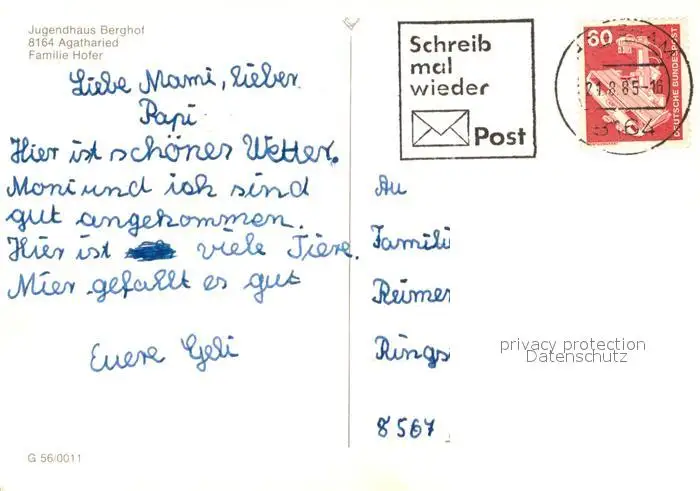 Jugendhaus Berghof
8164 Agatharied
Familie Hofer
Liebe Mami, lieber
Papi
Hier ist schönes Wetter.
Moni und ich sind
gut angekommen.
Hier ist viele Tiere.
Mier gefallt es gut
Euere Geli
G 56/0011
Schreib
mal
wieder
Post
60
DEUTSCHE BUNDESPOST
21.8.85-16
8164
An
Famili
Reimer
Rings
8567
privacy protection
Datenschutz